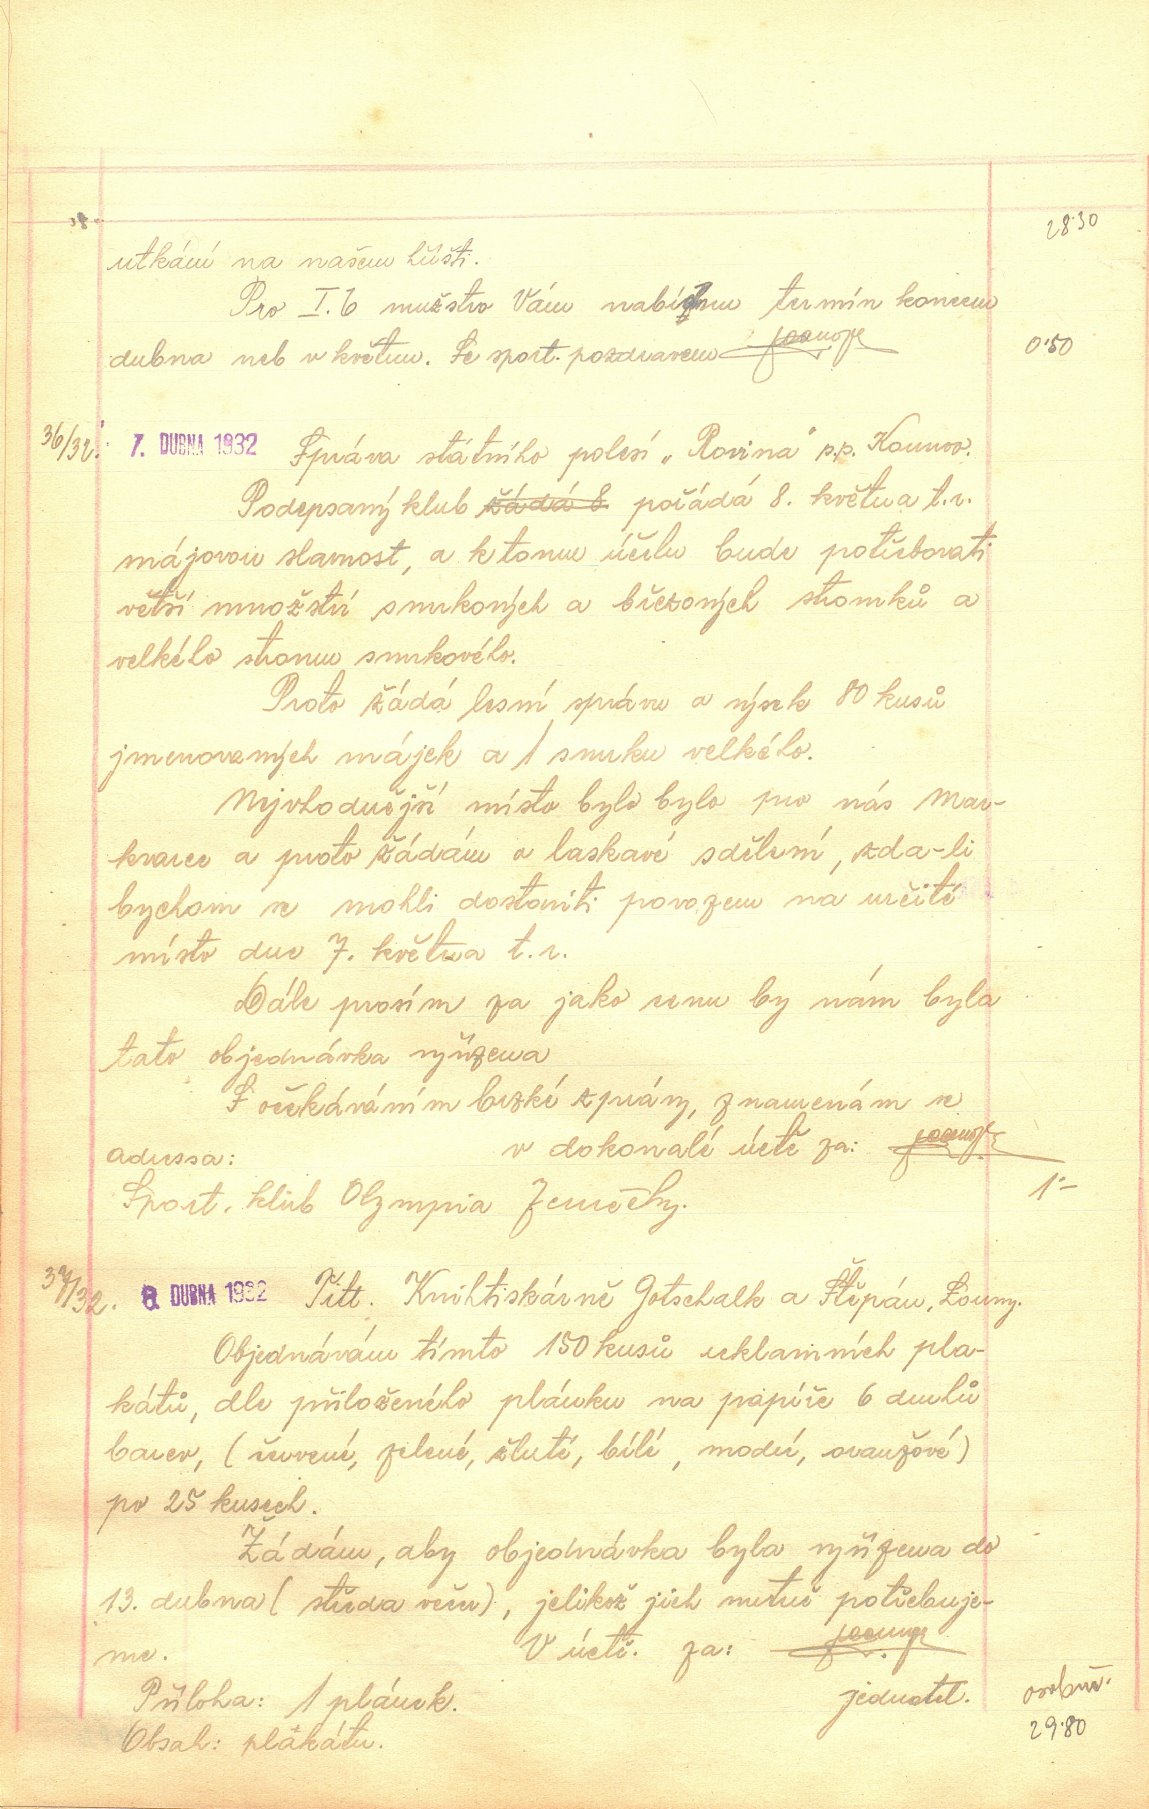 28·30
utkání na našem hřišti.
Pro I. b mužstvo Vám nabízíme termín koncem
dubna neb v květnu. Se sport. pozdravem
0·50
36/32. 7. DUBNA 1932 Správa státního polesí „Rovina" p.p. Kounov.
Podepsaný klub žádá 8. pořádá 8. května t.r.
májovou slavnost, a k tomu účelu bude potřebovati
větší množství smrkových a březových stromků a
velkého stromu smrkového.
Proto žádá lesní správu a výsek 80 kusů
jmenovaných májek a 1 smrku velkého.
Nejvhodnější místo bylo bylo pro nás Mar-
kvarec a proto žádám o laskavé sdělení, zda-li
bychom se mohli dostaviti povozem na určité
místo dne 7. května t.r.
Dále prosím za jako cenu by nám byla
tato objednávka vyřízena
S očekáváním brzké zprávy, znamenám se
v dokonalé úctě za:
adressa:
1·–
Sport. klub Olympia Zeměchy.
37/32. 8. DUBNA 1932 Titt. Knihtiskárně Gotschalk a Štěpán, Louny.
Objednávám tímto 150 kusů reklamních pla-
kátů, dle přiloženého plánku na papíře 6 druhů
barev, (červené, zelené, žluté, bílé, modré, oranžové)
po 25 kusech.
Žádám, aby objednávka byla vyřízena do
13. dubna (středa večer), jelikož jich nutně potřebuje-
me. V úctě. za:
Příloha: 1 plánek. jednatel. osobně.
Obsah: plakátu. 29·80